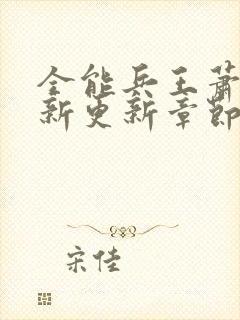 全能兵王萧
新更新章節
宋佳